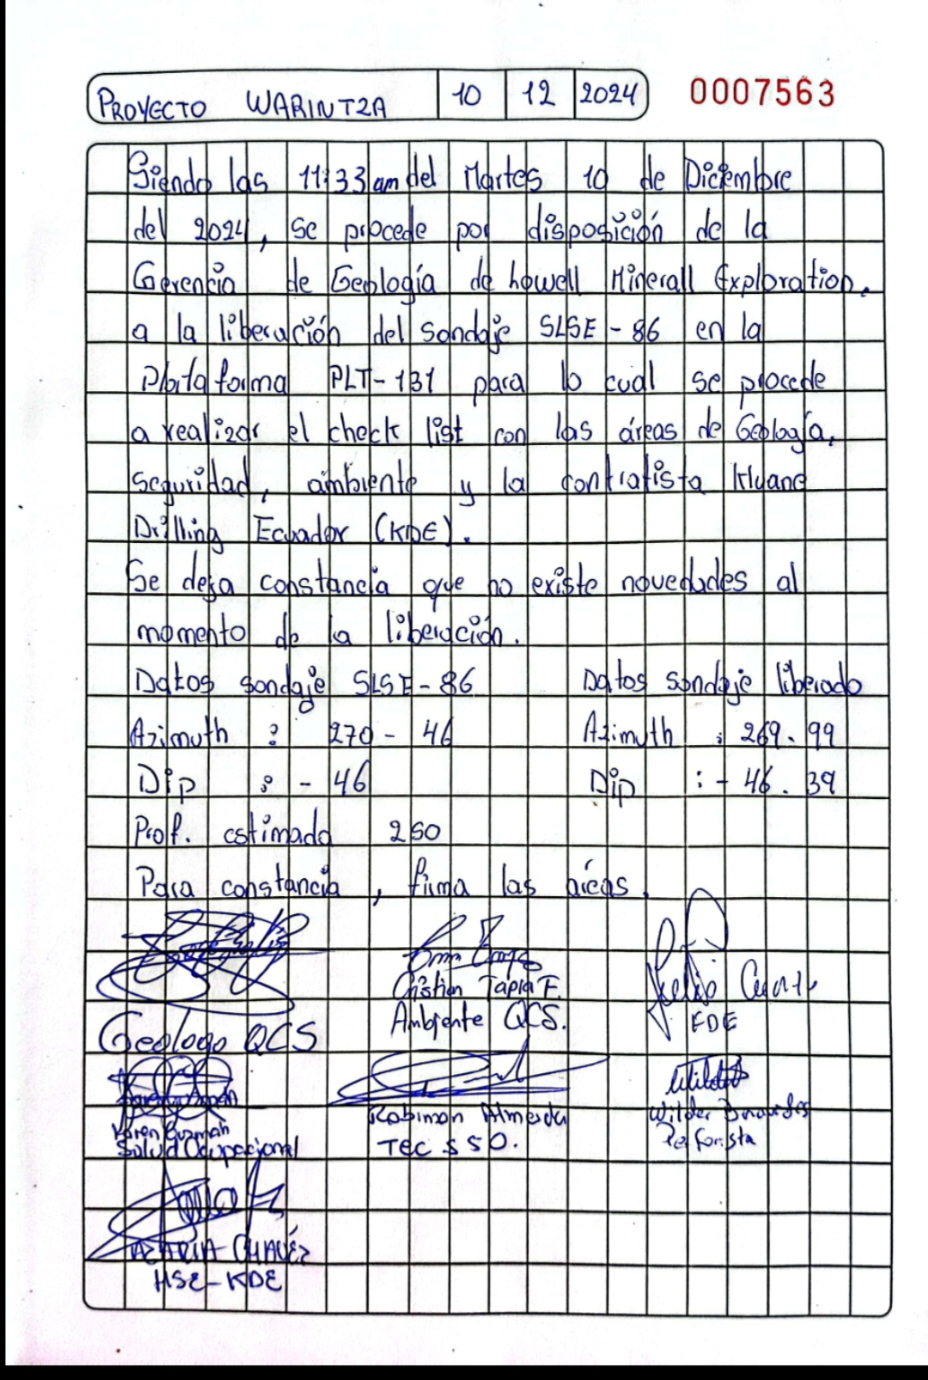 PROYECTO WARINTZA 10 12 2024 0007563
Siendo las 11:33 am del Martes 10 de Diciembre
del 2024, se procede por disposición de la
Gerencia de Geología de lowell Minerall Exploration.
a la liberación del sondaje SLSE-86 en la
Plataforma PLT-131 para lo cual se procede
a realizar el check list con las áreas de Geología,
seguridad, ambiente y la contratista Kluane
Drilling Ecuador (KDE).
Se deja constancia que no existe novedades al
momento de la liberación.
Datos sondaje SLSE-86 Datos sondaje liberado
Azimuth : 270 - 46 Azimuth : 269.99
Dip : - 46 Dip : - 46.39
Prof. estimada 250
Para constancia, firma las áreas.
Cristian Tapia F.
Geologo QCS Ambiente QCS. KDE
Karen Guzmán Robinson Almeida Wilder
Salud Ocupacional TEC SSO. Perforista
CHAVEZ
HSE-KDE